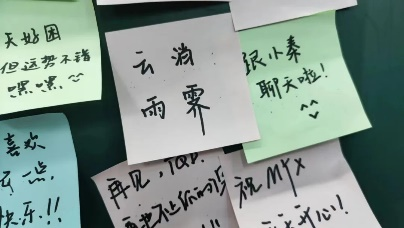 天好困
但运势不错
嘿嘿
云消
雨霁
跟小秦
聊天啦！
^^
喜欢
一点
快乐!!
再见，
祝MYX
开心!!